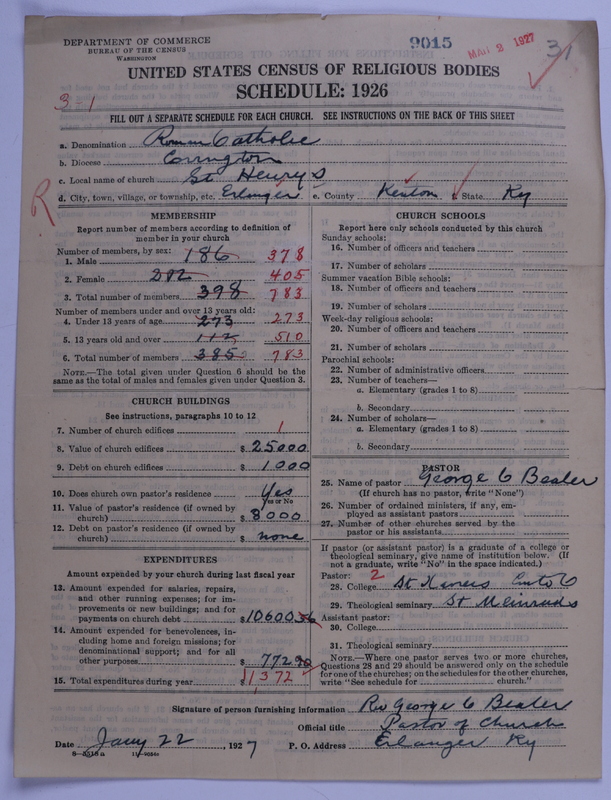 DEPARTMENT OF COMMERCE
BUREAU OF THE CENSUS
WASHINGTON
9015
MAR 2 1927
31
UNITED STATES CENSUS OF RELIGIOUS BODIES
SCHEDULE: 1926
3-1
FILL OUT A SEPARATE SCHEDULE FOR EACH CHURCH. SEE INSTRUCTIONS ON THE BACK OF THIS SHEET
a. Denomination Roman Catholic
b. Diocese Covington
c. Local name of church St Henry's
d. City, town, village, or township, etc. Erlanger e. County Kenton f. State Ky
R
MEMBERSHIP
Report number of members according to definition of
member in your church
Number of members, by sex:
1. Male 186 378
2. Female 212 405
3. Total number of members 398 783
Number of members under and over 13 years old:
4. Under 13 years of age 273 273
5. 13 years old and over 112 510
6. Total number of members 385 783
NOTE.—The total given under Question 6 should be
same as the total of males and females given under Question 3.
CHURCH BUILDINGS
See instructions, paragraphs 10 to 12
7. Number of church edifices 1
8. Value of church edifices $ 25000
9. Debt on church edifices $ 1000
10. Does church own pastor's residence Yes
Yes or No
11. Value of pastor's residence (if owned by
church) $ 8000
12. Debt on pastor's residence (if owned by
church) $ none
EXPENDITURES
Amount expended by your church during last fiscal year
13. Amount expended for salaries, repairs,
and other running expenses; for im-
provements or new buildings; and for
payments on church debt $ 10600.56
14. Amount expended for benevolences, in-
cluding home and foreign missions; for
denominational support; and for all
other purposes $ 772.90
15. Total expenditures during year $ 11372
CHURCH SCHOOLS
Report here only schools conducted by this church
Sunday schools:
16. Number of officers and teachers
17. Number of scholars
Summer vacation Bible schools:
18. Number of officers and teachers
19. Number of scholars
Week-day religious schools:
20. Number of officers and teachers
21. Number of scholars
Parochial schools:
22. Number of administrative officers
23. Number of teachers—
a. Elementary (grades 1 to 8)
b. Secondary
24. Number of scholars—
a. Elementary (grades 1 to 8)
b. Secondary
PASTOR
25. Name of pastor George C Bealer
(If church has no pastor, write "None")
26. Number of ordained ministers, if any, em-
ployed as assistant pastors
27. Number of other churches served by the
pastor or his assistants
If pastor (or assistant pastor) is a graduate of a college or
theological seminary, give name of institution below. (If
not a graduate, write "No" in the space indicated.)
Pastor: 2
28. College St
29. Theological seminary St Meinrads
Assistant pastor:
30. College
31. Theological seminary
NOTE.—Where one pastor serves two or more churches,
Questions 28 and 29 should be answered only on the schedule
for one of the churches; on the schedules for the other churches,
write "See schedule for church."
Signature of person furnishing information Rev George C Bealer
Official title Pastor of Church
Date Jany 22, 1927 P. O. Address Erlanger Ky